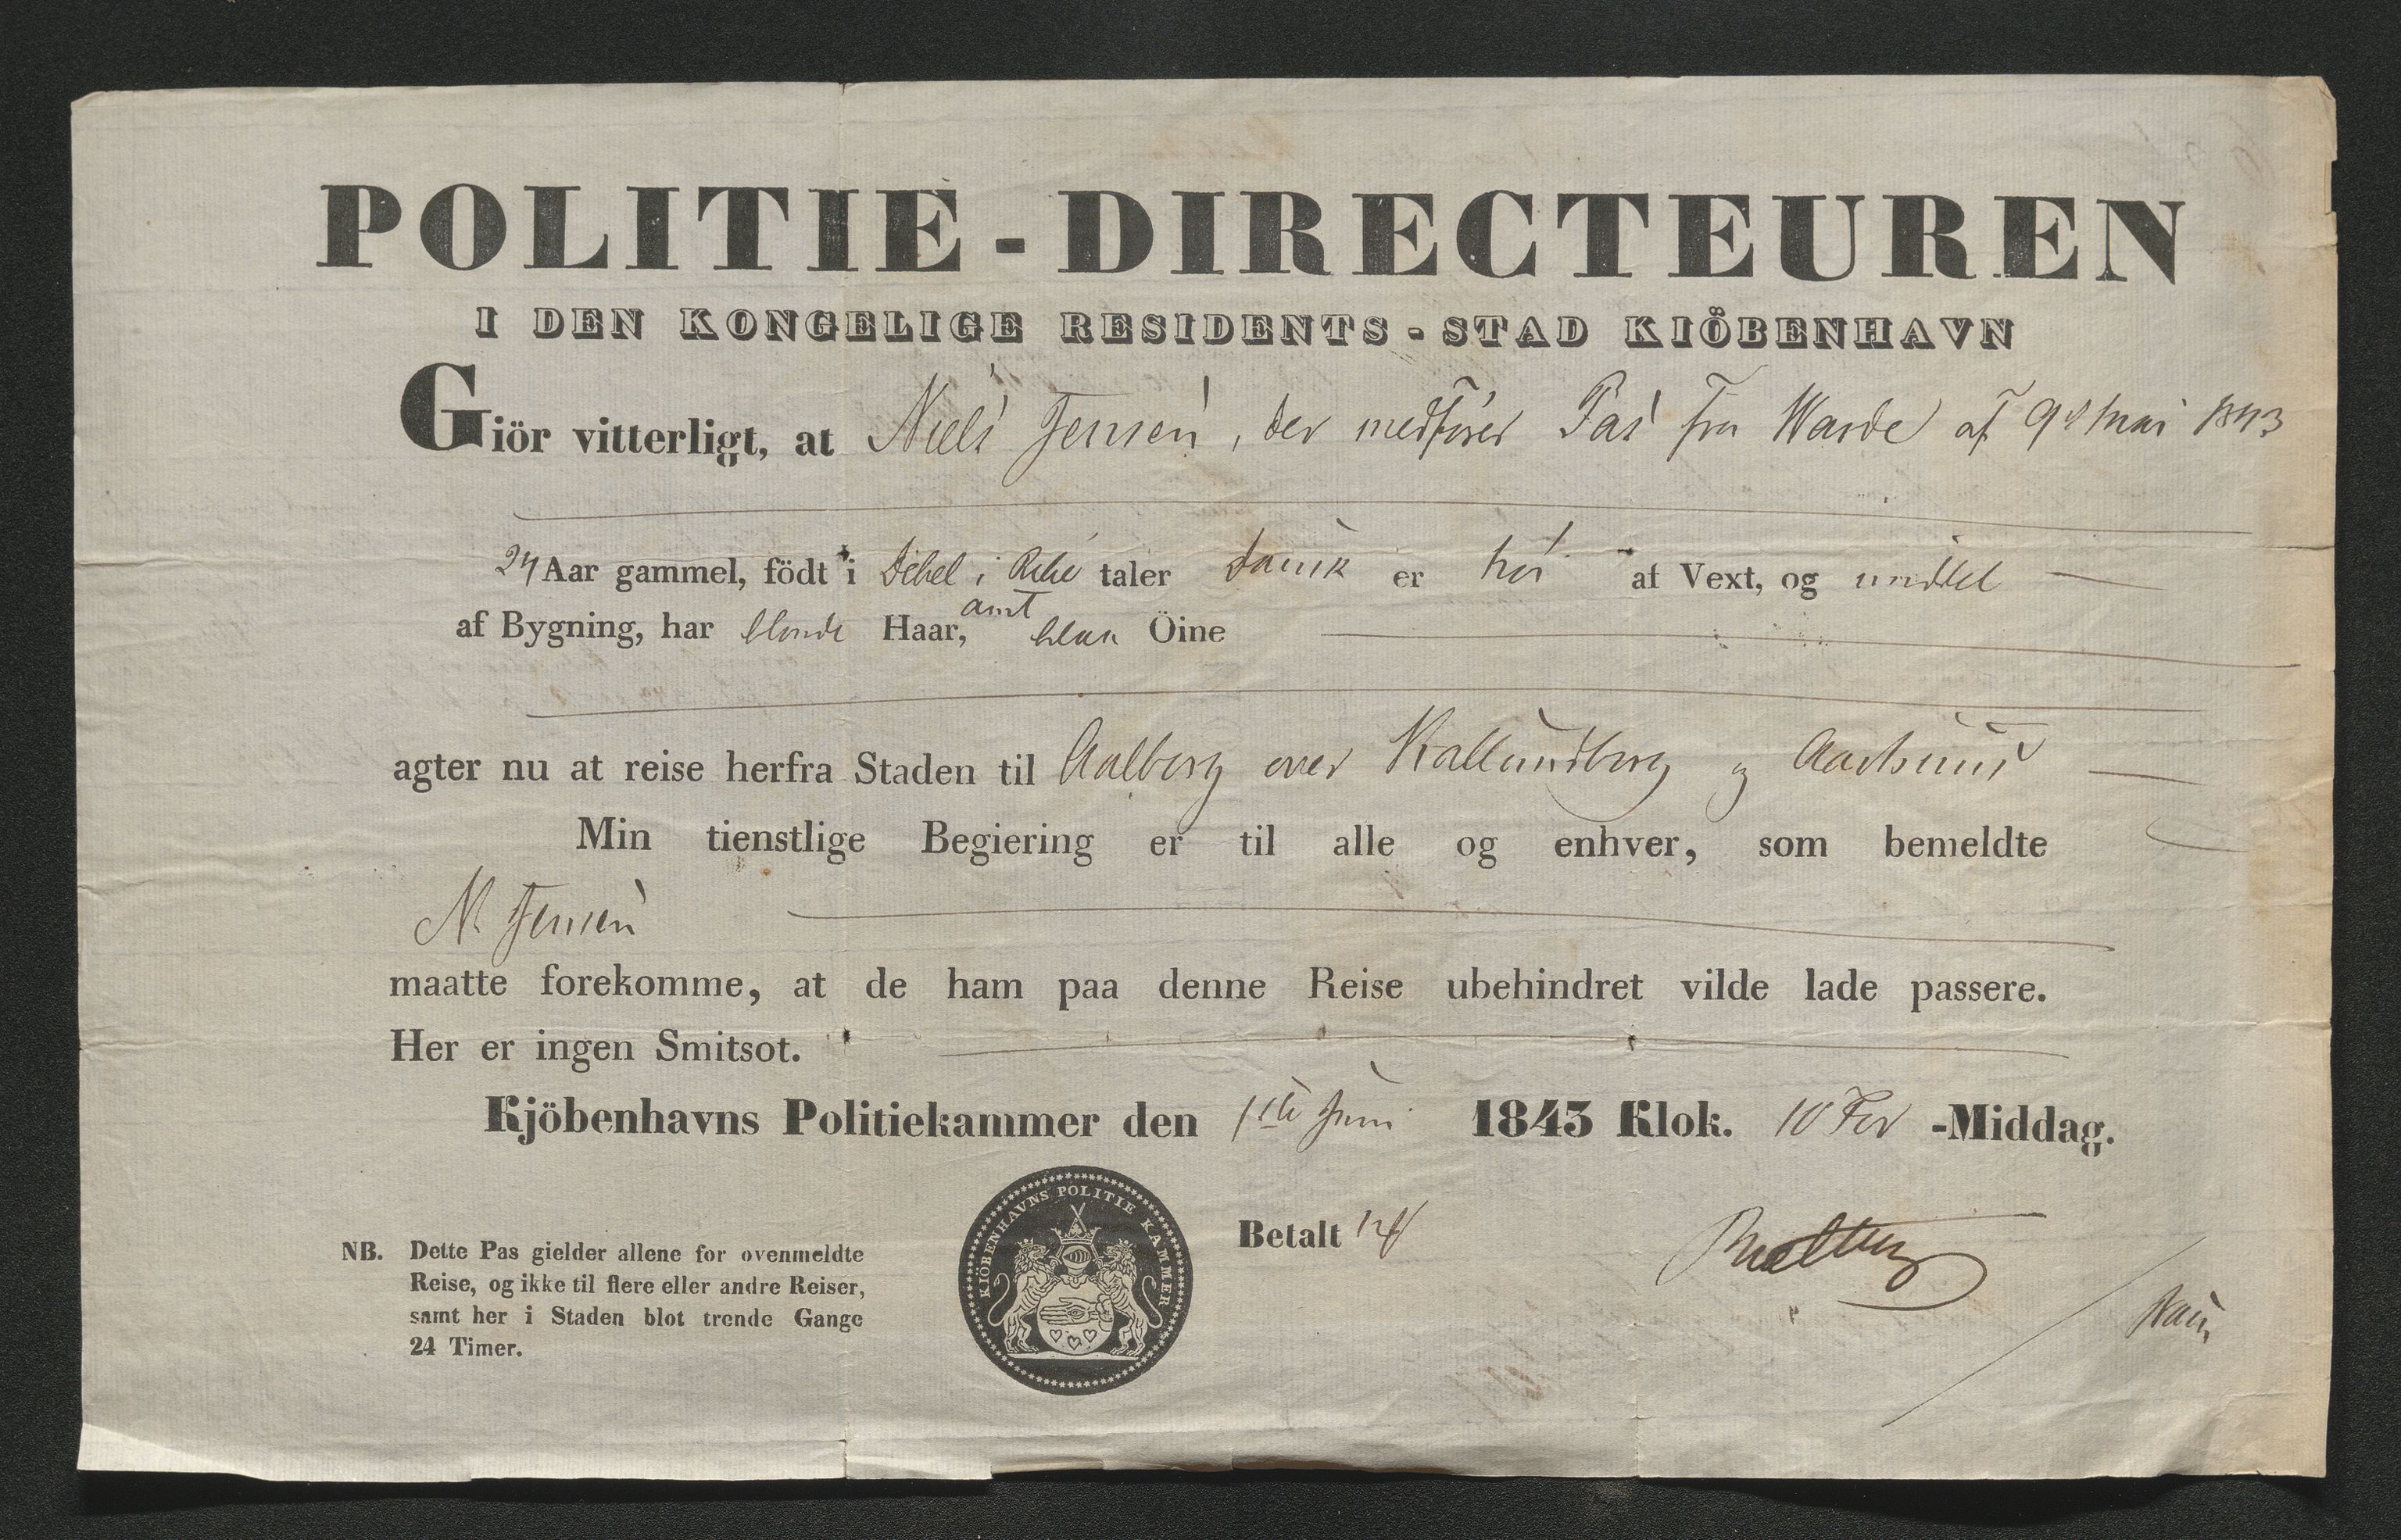 POLITIE-DIRECTEUREN
I DEN KONGELIGE RESIDENTS-STAD KIÖBENHAVN
Giör vitterligt, at Niels Jensen, der medfører Pas fra Warde af 9d Mai 1843
24 Aar gammel, födt i Debel i Ribe taler dansk er høi af Vext, og middel
amt
af Bygning, har blonde Haar, blaa Öine
agter nu at reise herfra Staden til Aalborg over Kallundborg og Aarhuus
Min tienstlige Begiering er til alle og enhver, som bemeldte
N. Jensen
maatte forekomme, at de ham paa denne Reise ubehindret vilde lade passere.
Her er ingen Smitsot.
Kjöbenhavns Politiekammer den 1ste Juni 1843 Klok. 10 For-Middag.
KIÖBENHAVNS POLITIE KAMMER
Betalt 12
NB. Dette Pas gielder allene for ovenmeldte
Reise, og ikke til flere eller andre Reiser,
samt her i Staden blot trende Gange
24 Timer.